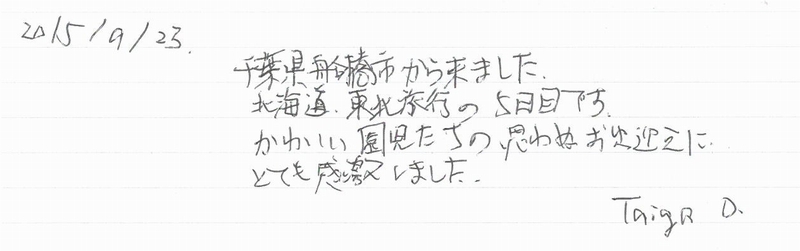 2015/9/23.
千葉県船橋市から来ました.
北海道.東北旅行の5日目です.
かわいい園児たちの思わぬお出迎えに
とても感激しました.
Taiga D.